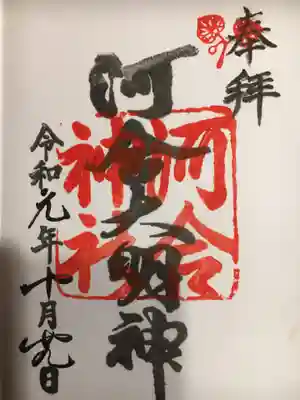 奉拝
河合大明神
河合神社
令和元年十月廿九日